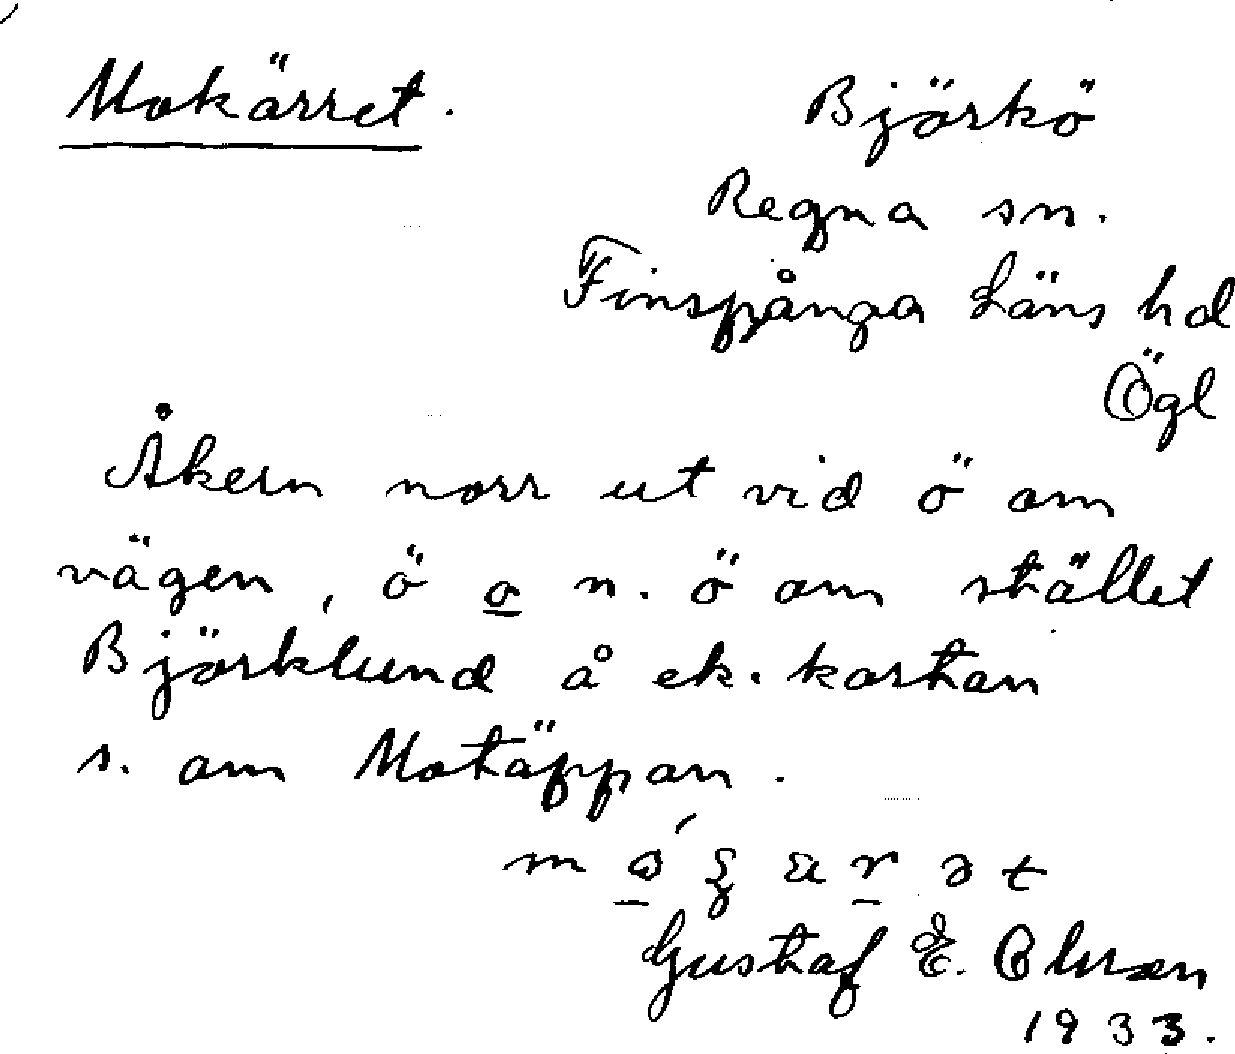 Mokärret.
Björkö
Regna sn.
Finspånga Läns hd
Ögl
Åkern norr ut vid ö om
vägen, ö o n. ö om stället
Björklund å ek. kartan
s. om Motäppan.
Gustaf E. Olsson
1933.